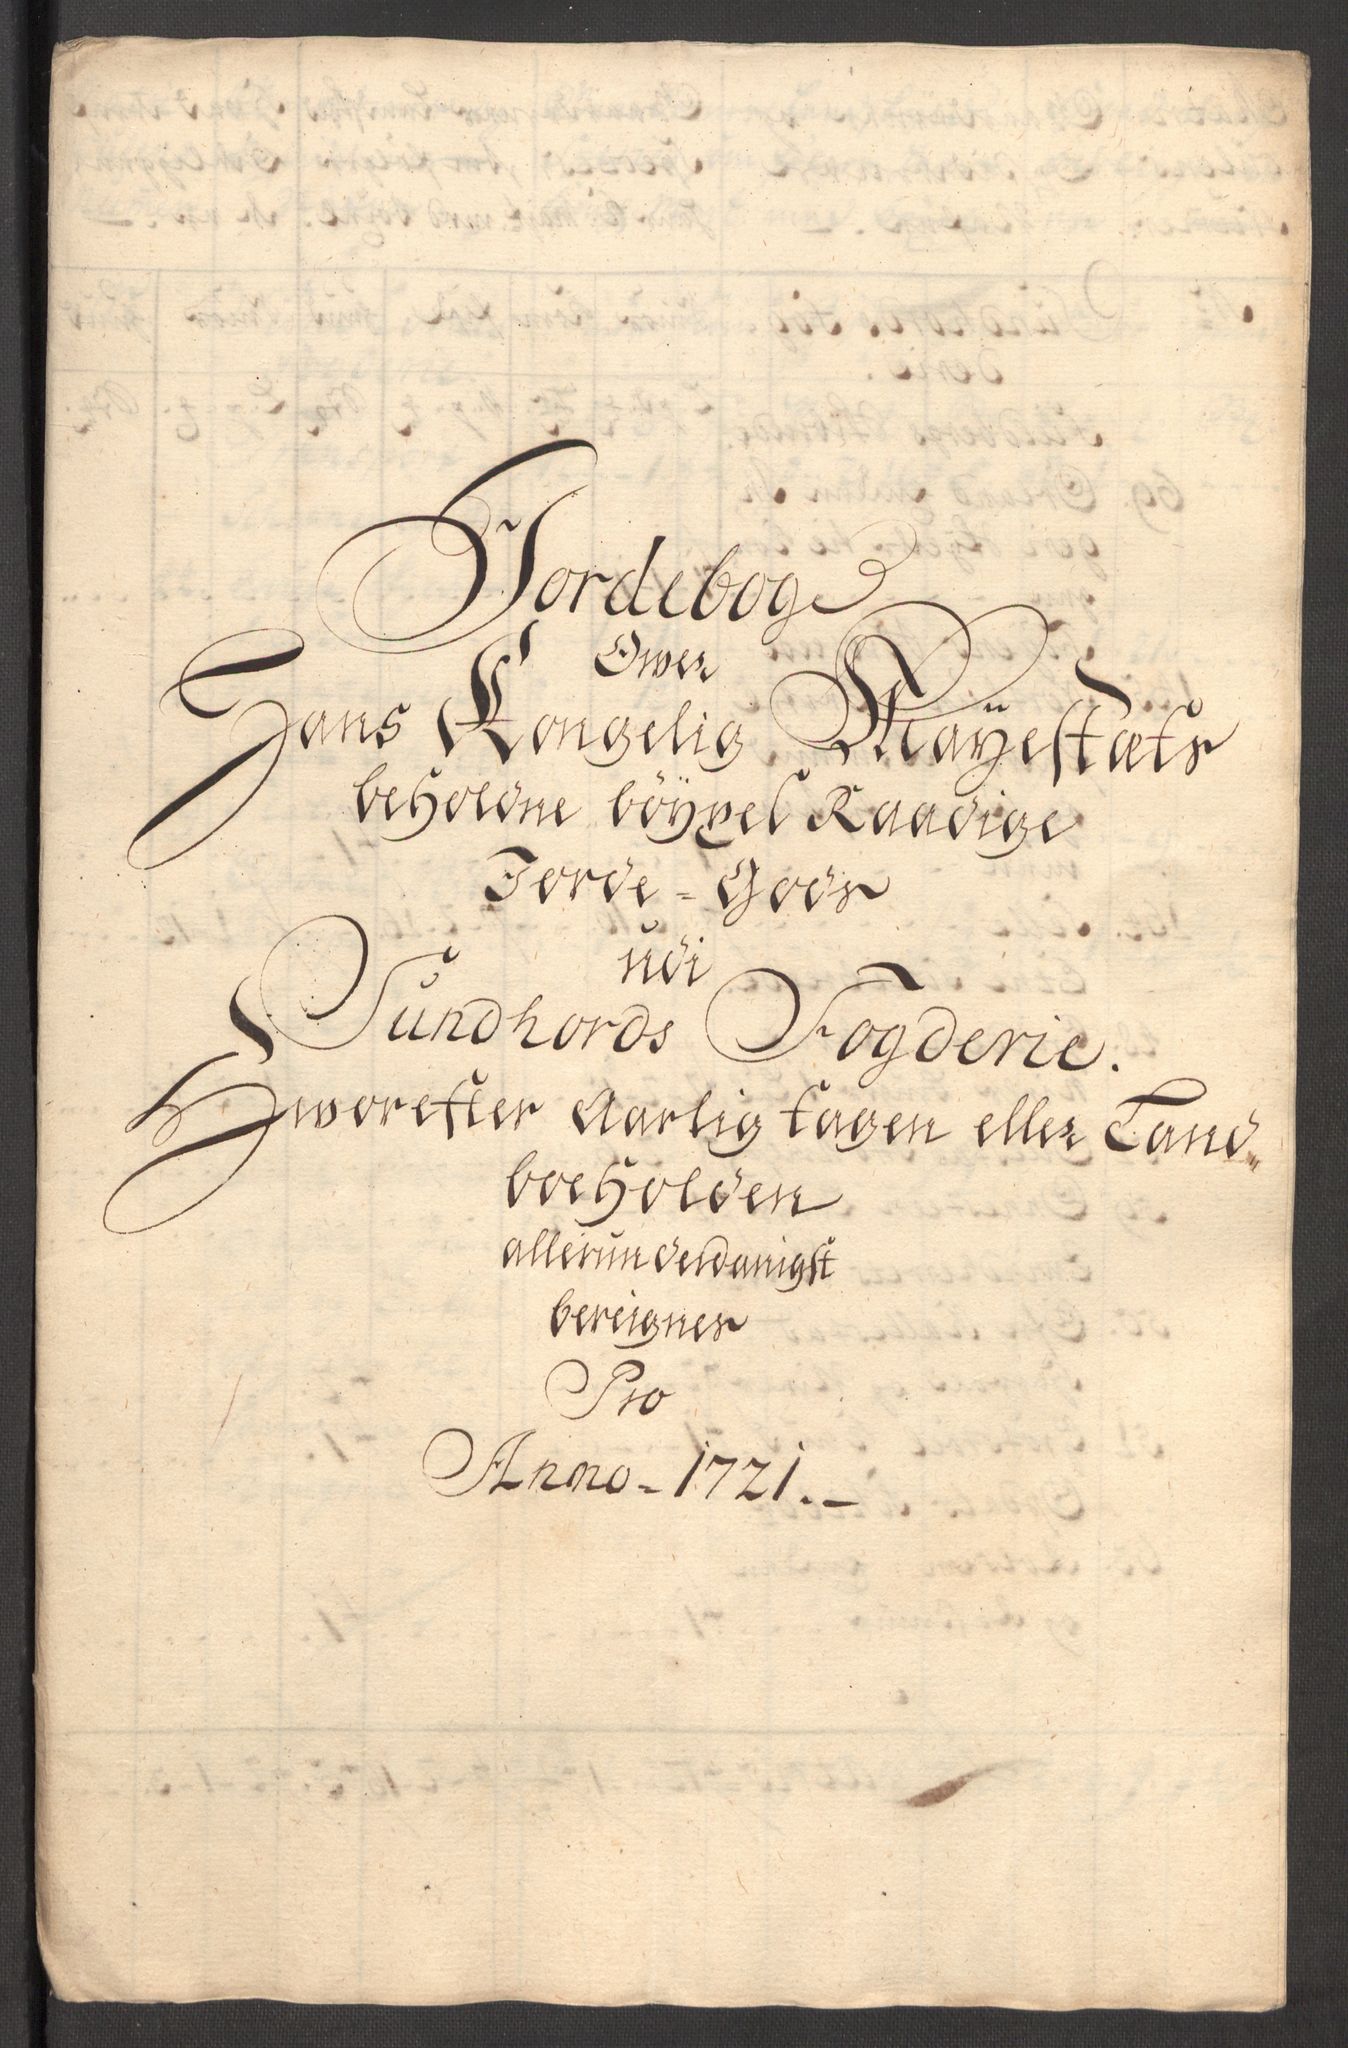 Jordebog
Ower
Hans Kongelig Mayestæts
beholdne böyxel Raadige
Jorde-Gods
udi
Sundhords Fogderie.
Hworefter Aarlig tagen eller Land
boeholden
allerunderdanigst
bereignes
Pro
Anno - 1721.-